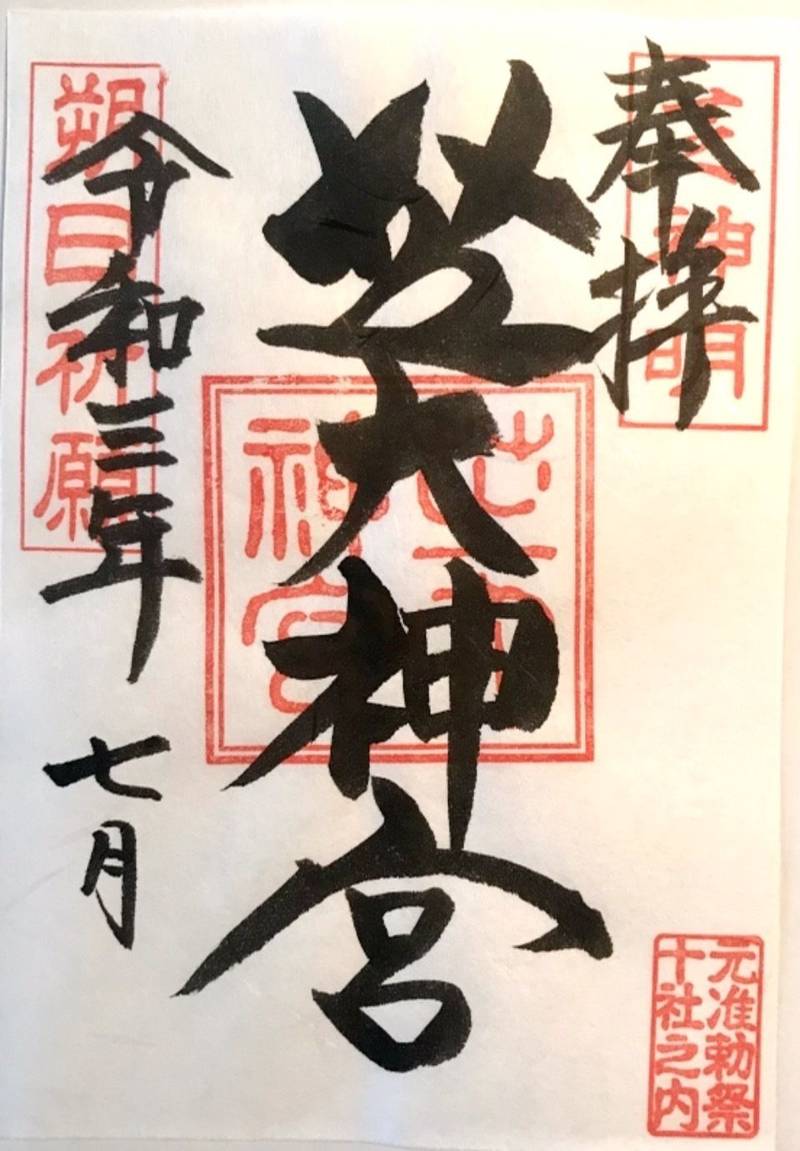 奉拝
神明
芝大神宮
芝大
神宮
令和三年 七月
朔日祈願
元准勅祭
十社之内